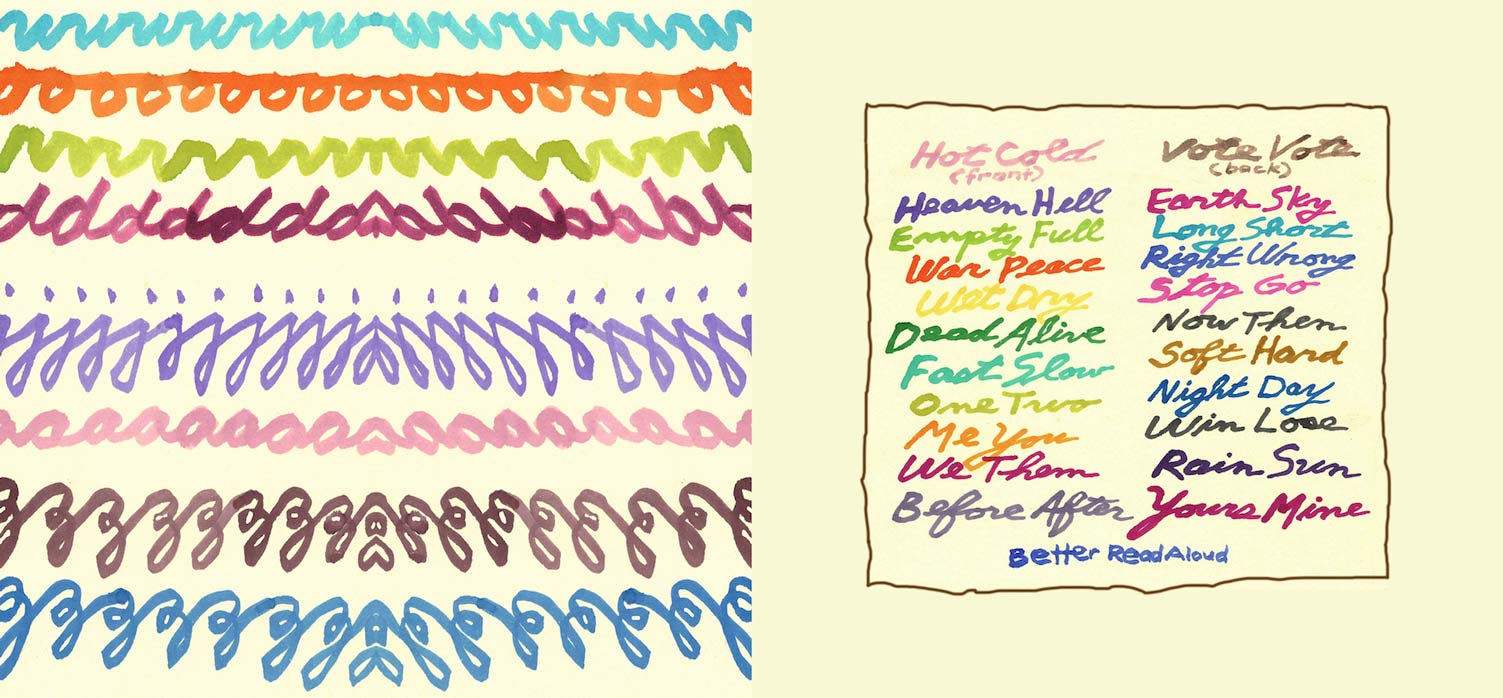 Hot Cold
(front)
Heaven Hell
Empty Full
War Peace
Wet Dry
Dead Alive
Fast Slow
One Two
Me You
We Them
Before After
Vote Vote
(back)
Earth Sky
Long Short
Right Wrong
Stop Go
Now Then
Soft Hard
Night Day
Win Lose
Rain Sun
Yours Mine
Better Read Aloud